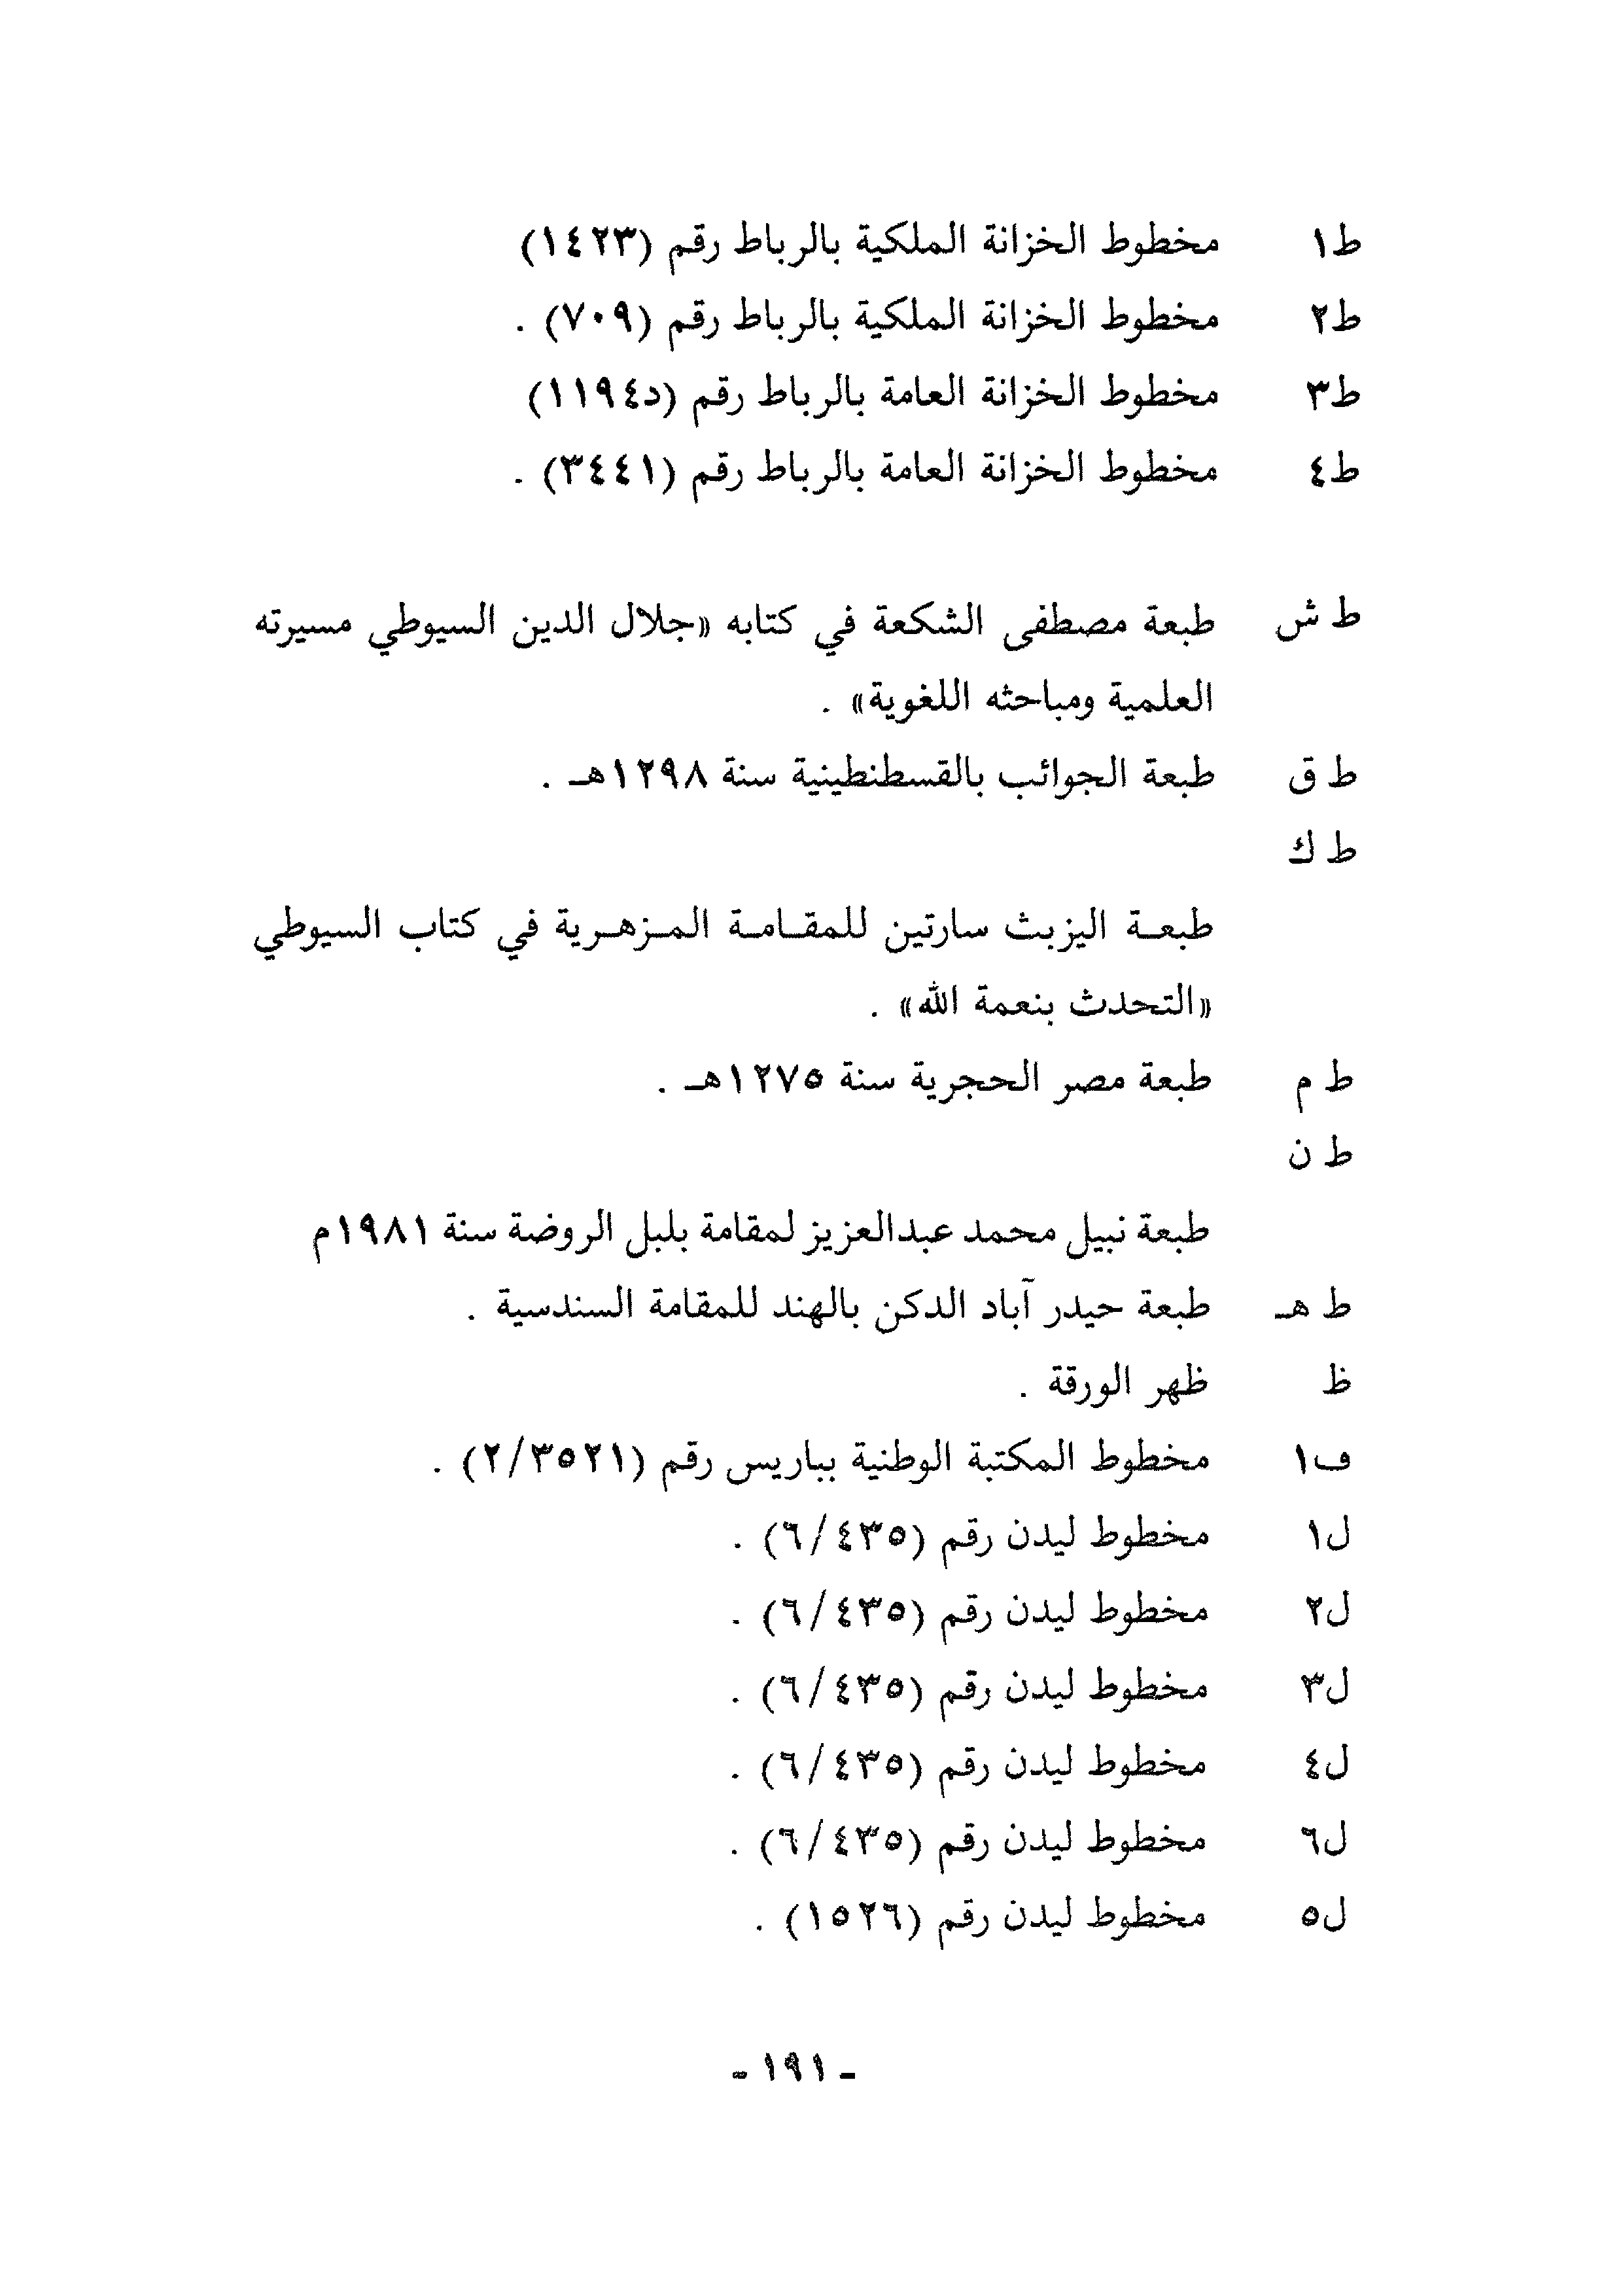 ط١ مخطوط الخزانة الملكية بالرباط رقم (١٤٢٣)
ط٢ مخطوط الخزانة الملكية بالرباط رقم (٧٠٩) .
ط٣ مخطوط الخزانة العامة بالرباط رقم (د١١٩٤)
ط٤ مخطوط الخزانة العامة بالرباط رقم (٣٤٤١) .
ط ش طبعة مصطفى الشكعة في كتابه «جلال الدين السيوطي مسيرته
العلمية ومباحثه اللغوية» .
ط ق طبعة الجوائب بالقسطنطينية سنة ١٢٩٨هـ .
ط ك
طبعة اليزبث سارتين للمقامة المزهرية في كتاب السيوطي
«التحدث بنعمة الله» .
ط م طبعة مصر الحجرية سنة ١٢٧٥هـ .
ط ن
طبعة نبيل محمد عبدالعزيز لمقامة بلبل الروضة سنة ١٩٨١م
ط هـ طبعة حيدر آباد الدكن بالهند للمقامة السندسية .
ظ ظهر الورقة .
ف١ مخطوط المكتبة الوطنية بباريس رقم (٢/٣٥٢١) .
ل١ مخطوط ليدن رقم (٦/٤٣٥) .
ل٢ مخطوط ليدن رقم (٦/٤٣٥) .
ل٣ مخطوط ليدن رقم (٦/٤٣٥) .
ل٤ مخطوط ليدن رقم (٦/٤٣٥) .
ل٦ مخطوط ليدن رقم (٦/٤٣٥) .
ل٥ مخطوط ليدن رقم (١٥٢٦) .
ـ ١٩١ ـ